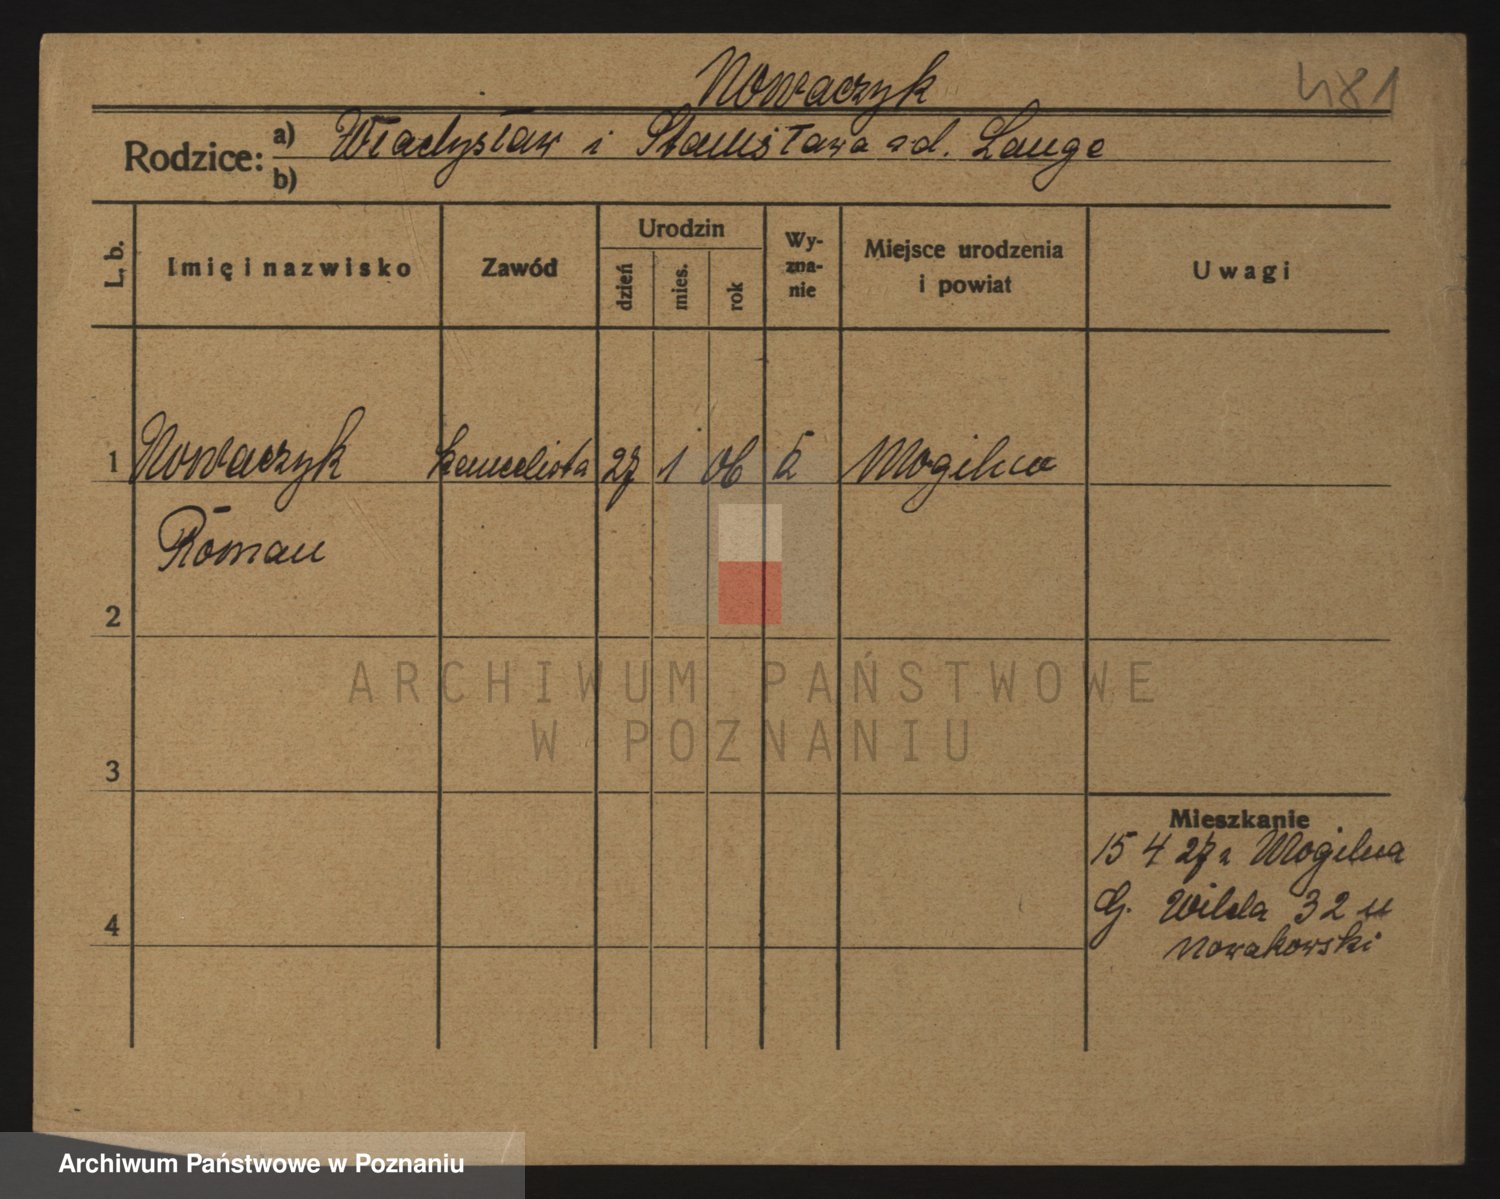 Nowaczyk 481
Rodzice:
a) Władysław i Stanisława zd. Lange
b)
L. b. Imię i nazwisko Zawód Urodzin Wy-zna-nie Miejsce urodzenia i powiat Uwagi
dzień mies. rok
1 Nowaczyk kancelista 27 1 06 k Mogilno
Roman
2
3
4
Mieszkanie
15 4 27 z Mogilna
G. Wilda 32 u
Nowakowski
ARCHIWUM PAŃSTWOWE
W POZNANIU
Archiwum Państwowe w Poznaniu